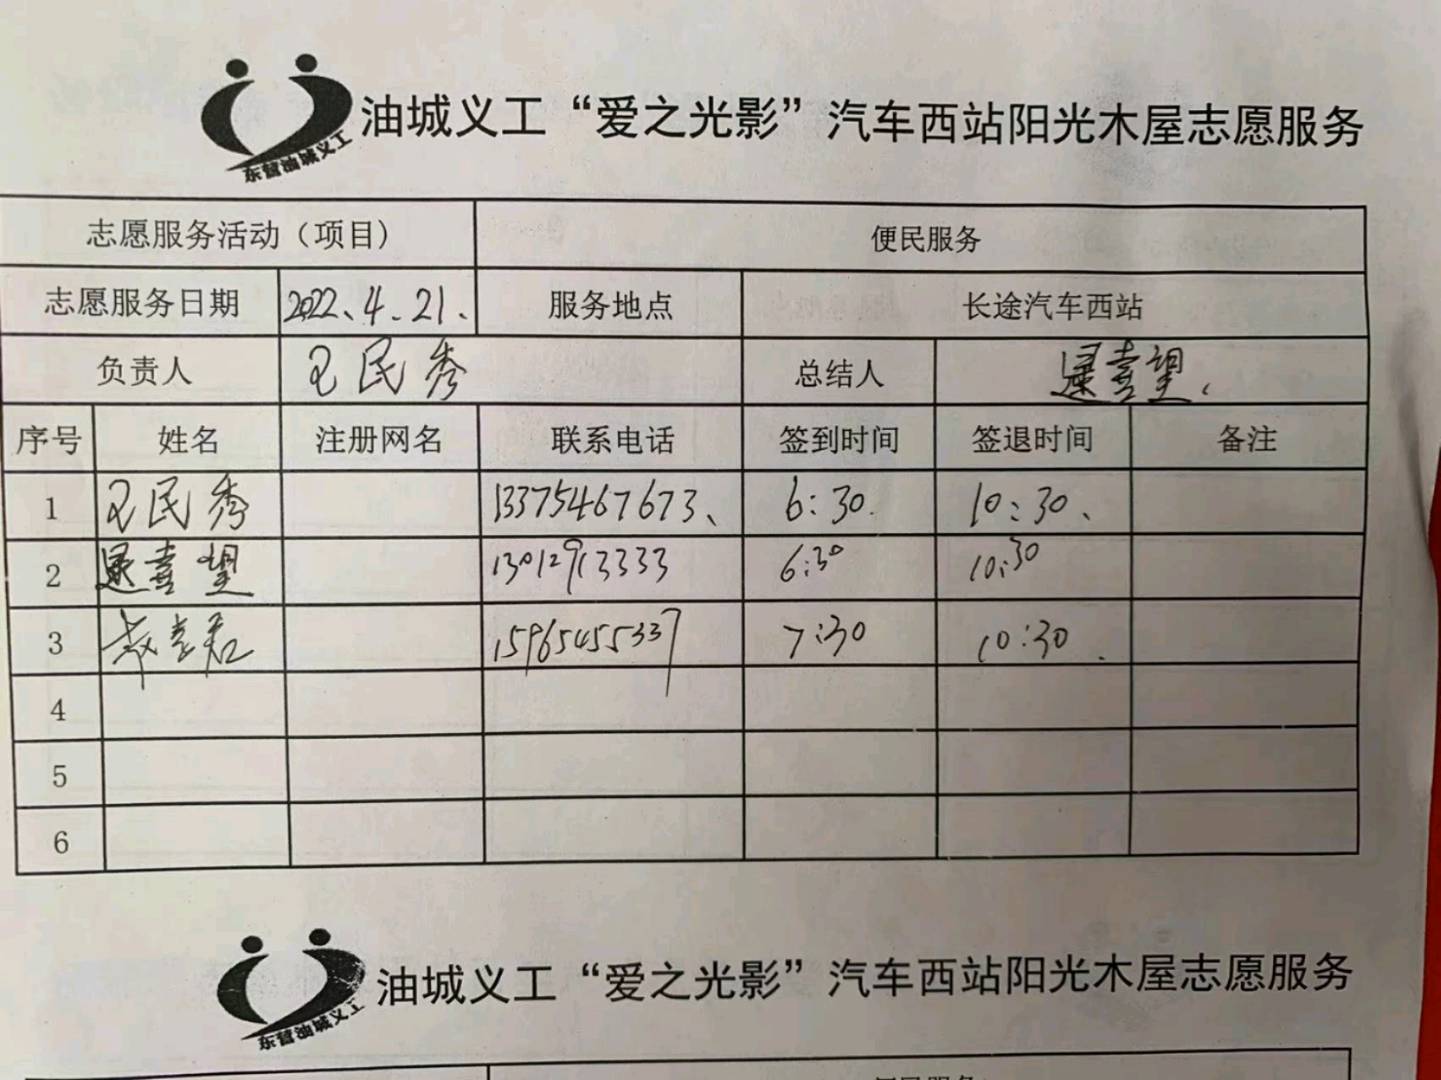 东营油城义工
油城义工“爱之光影”汽车西站阳光木屋志愿服务
志愿服务活动（项目） 便民服务
志愿服务日期 2022、4.21、 服务地点 长途汽车西站
负责人 民秀 总结人 喜望、
序号 姓名 注册网名 联系电话 签到时间 签退时间 备注
1 民秀 13375467673、 6:30. 10:30、
2 喜望 13012913333 6:30 10:30
3 15965455337 7:30 10:30.
4
5
6
东营油城义工
油城义工“爱之光影”汽车西站阳光木屋志愿服务